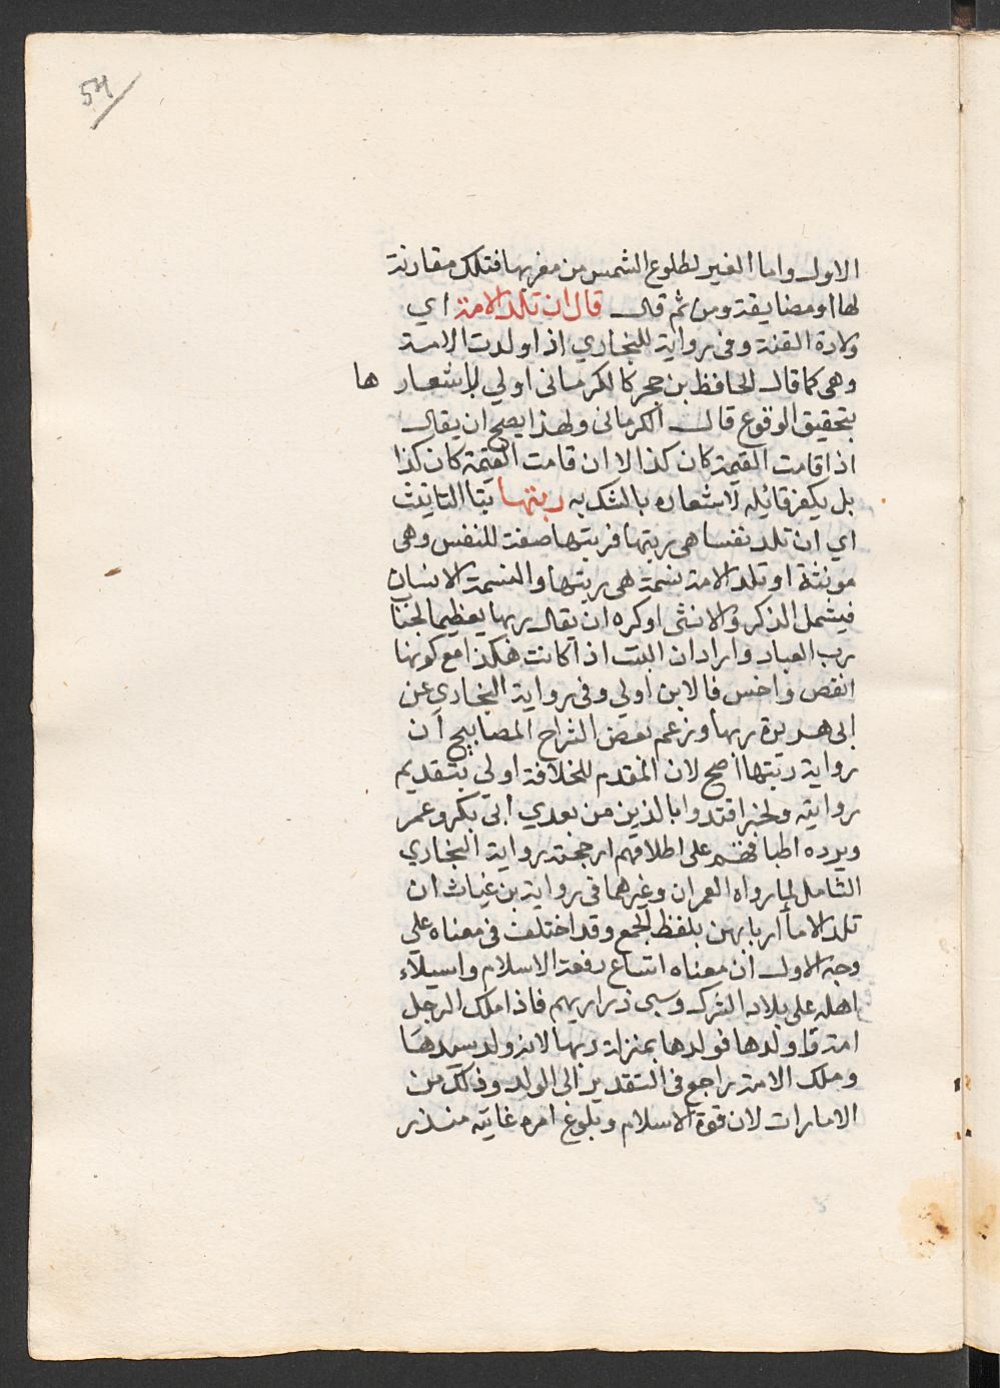 54
الاول واما الغير لطلوع الشمس من مغربها فتلك مقارنة
لها او مضايقة ومن ثم قال قال ان تلد الامة اي
ولادة القنة وفي رواية للبخاري اذا ولدت الامة
وهي كما قال الحافظ بن حجر كالكرماني اولي لاشعار ها
بتحقيق الوقوع قال الكرماني ولهذا يصح ان يقال
اذا قامت القيمة كان كذا لا ان قامت القيمة كان كذا
بل يكفر قائله لاشعاره بالشك به ربتها بتا التانيث
اي ان تلد نفسا هي ربتها فربتها صفة للنفس وهي
مونثة او تلد الامة نسمة هي ربتها والنسمة الانسان
فيشمل الذكر والانثى او كره ان يقال ربها يعظيما لجناب
رب العباد واراد ان البنت اذا كانت هكذا مع كونها
انقص واخس فالابن اولي وفي رواية البخاري عن
ابي هريرة ربها وزعم بعض الشراح المصابيح ان
رواية ربتها اصح لان المقدم للخلافة اولي بتقديم
روايته ولخبر اقتدوا بالذين من بعدي ابي بكر وعمر
ويرده اطباقهم على اطلاقهم ارجحية رواية البخاري
الشامل لما رواه العمران وغيرهما في رواية بن غياث ان
تلد الاماء اربابهن بلفظ الجمع وقد اختلف في معناه علي
وجه الاول ان معناه اتساع رفعة الاسلام واستيلاء
اهله على بلاد الشرك وسبي ذراريهم فاذا ملك الرجل
امة واولدها فولدها بمنزلة ربها لانه ولد سيدها
وملك الامة راجع في التقدير الى الولد وذلك من
الامارات لان قوة الاسلام وبلوغ امره غايته منذر